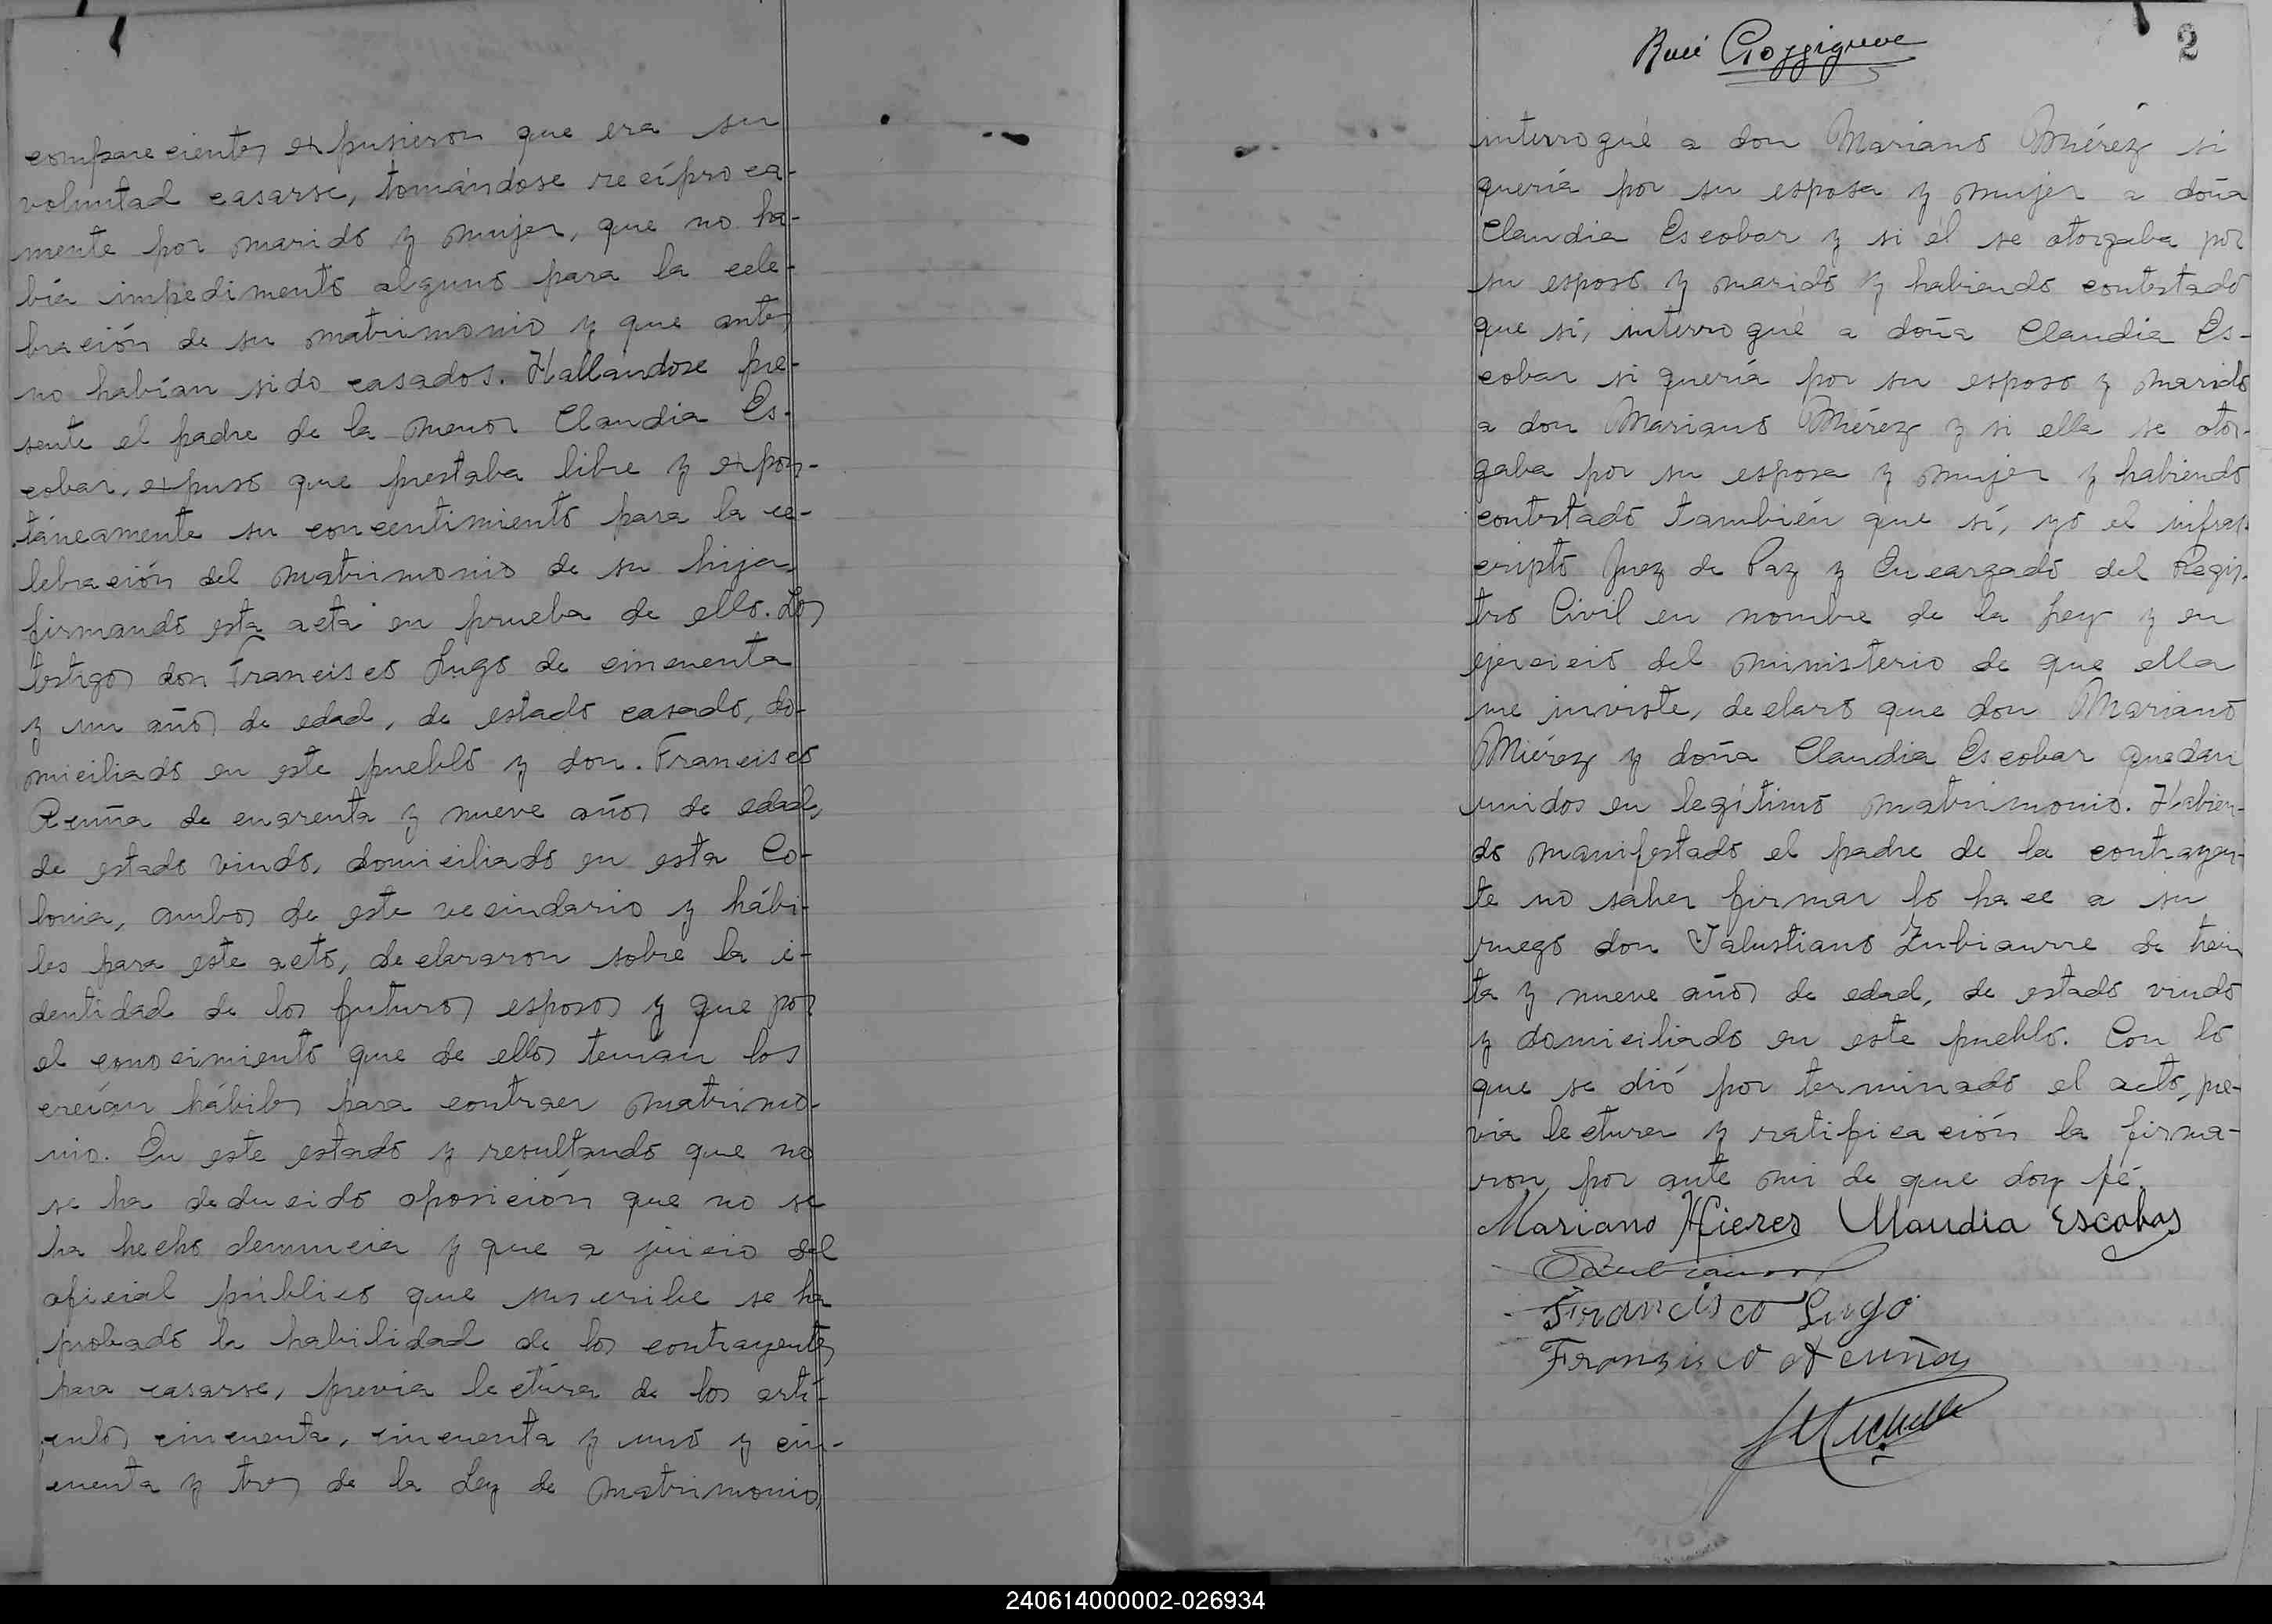 comparecientes expusieron que era su
voluntad casarse, tomándose recíproca-
mente por marido y mujer, que no ha-
bía impedimento alguno para la cele-
bración de su matrimonio y que antes
no habían sido casados. Hallandose pre-
sente el padre de la menor Claudia Es-
cobar, expuso que prestaba libre y expon-
táneamente su concentimiento para la ce-
lebración del matrimonio de su hija
firmando esta acta en prueba de ello. Los
testigos don Francisco Lugo de cincuenta
y un años de edad, de estado casado, do-
miciliado en este pueblo y don. Francisco
Acuña de cuarenta y nueve años de edad,
de estado viudo, domiciliado en esta Co-
lonia, ambos de este vecindario y hábi-
les para este acto, declararon sobre la i-
dentidad de los futuros esposos y que por
el conocimiento que de ellos tenían los
creían hábiles para contraer matrimo-
nio. En este estado y resultando que no
se ha deducido oposición que no se
ha hecho denuncia y que a juicio del
oficial público que suscribe se ha
probado la habilidad de los contrayentes
para casarse, previa lectura de los artí-
culos cincuenta, cincuenta y uno y cin-
cuenta y tres de la Ley de Matrimonio,
2
interrogué a don Mariano Miérez si
quería por su esposa y mujer a doña
Claudia Escobar y si él se otorgaba por
su esposo y marido y habiendo contestado
que sí, interrogué a doña Claudia Es-
cobar si quería por su esposo y marido
a don Mariano Miérez y si ella se otor-
gaba por su esposa y mujer y habiendo
contestado también que sí, yo el infras-
cripto Juez de Paz y Encargado del Regis-
tro Civil en nombre de la Ley y en
ejercicio del ministerio de que ella
me inviste, declaro que don Mariano
Miérez y doña Claudia Escobar quedan
unidos en legítimo matrimonio. Habien-
do manifestado el padre de la contrayen-
te no saber firmar lo hace a su
ruego don Salustiano Zubiaurre de trein
ta y nueve años de edad, de estado viudo
y domiciliado en este pueblo. Con lo
que se dió por terminado el acto, pre-
via lectura y ratificación la firma-
ron por ante mi de que doy fé.
Mariano Mieres Claudia Escobar
Francisco Lugo
Francisco Acuña
240614000002-026934